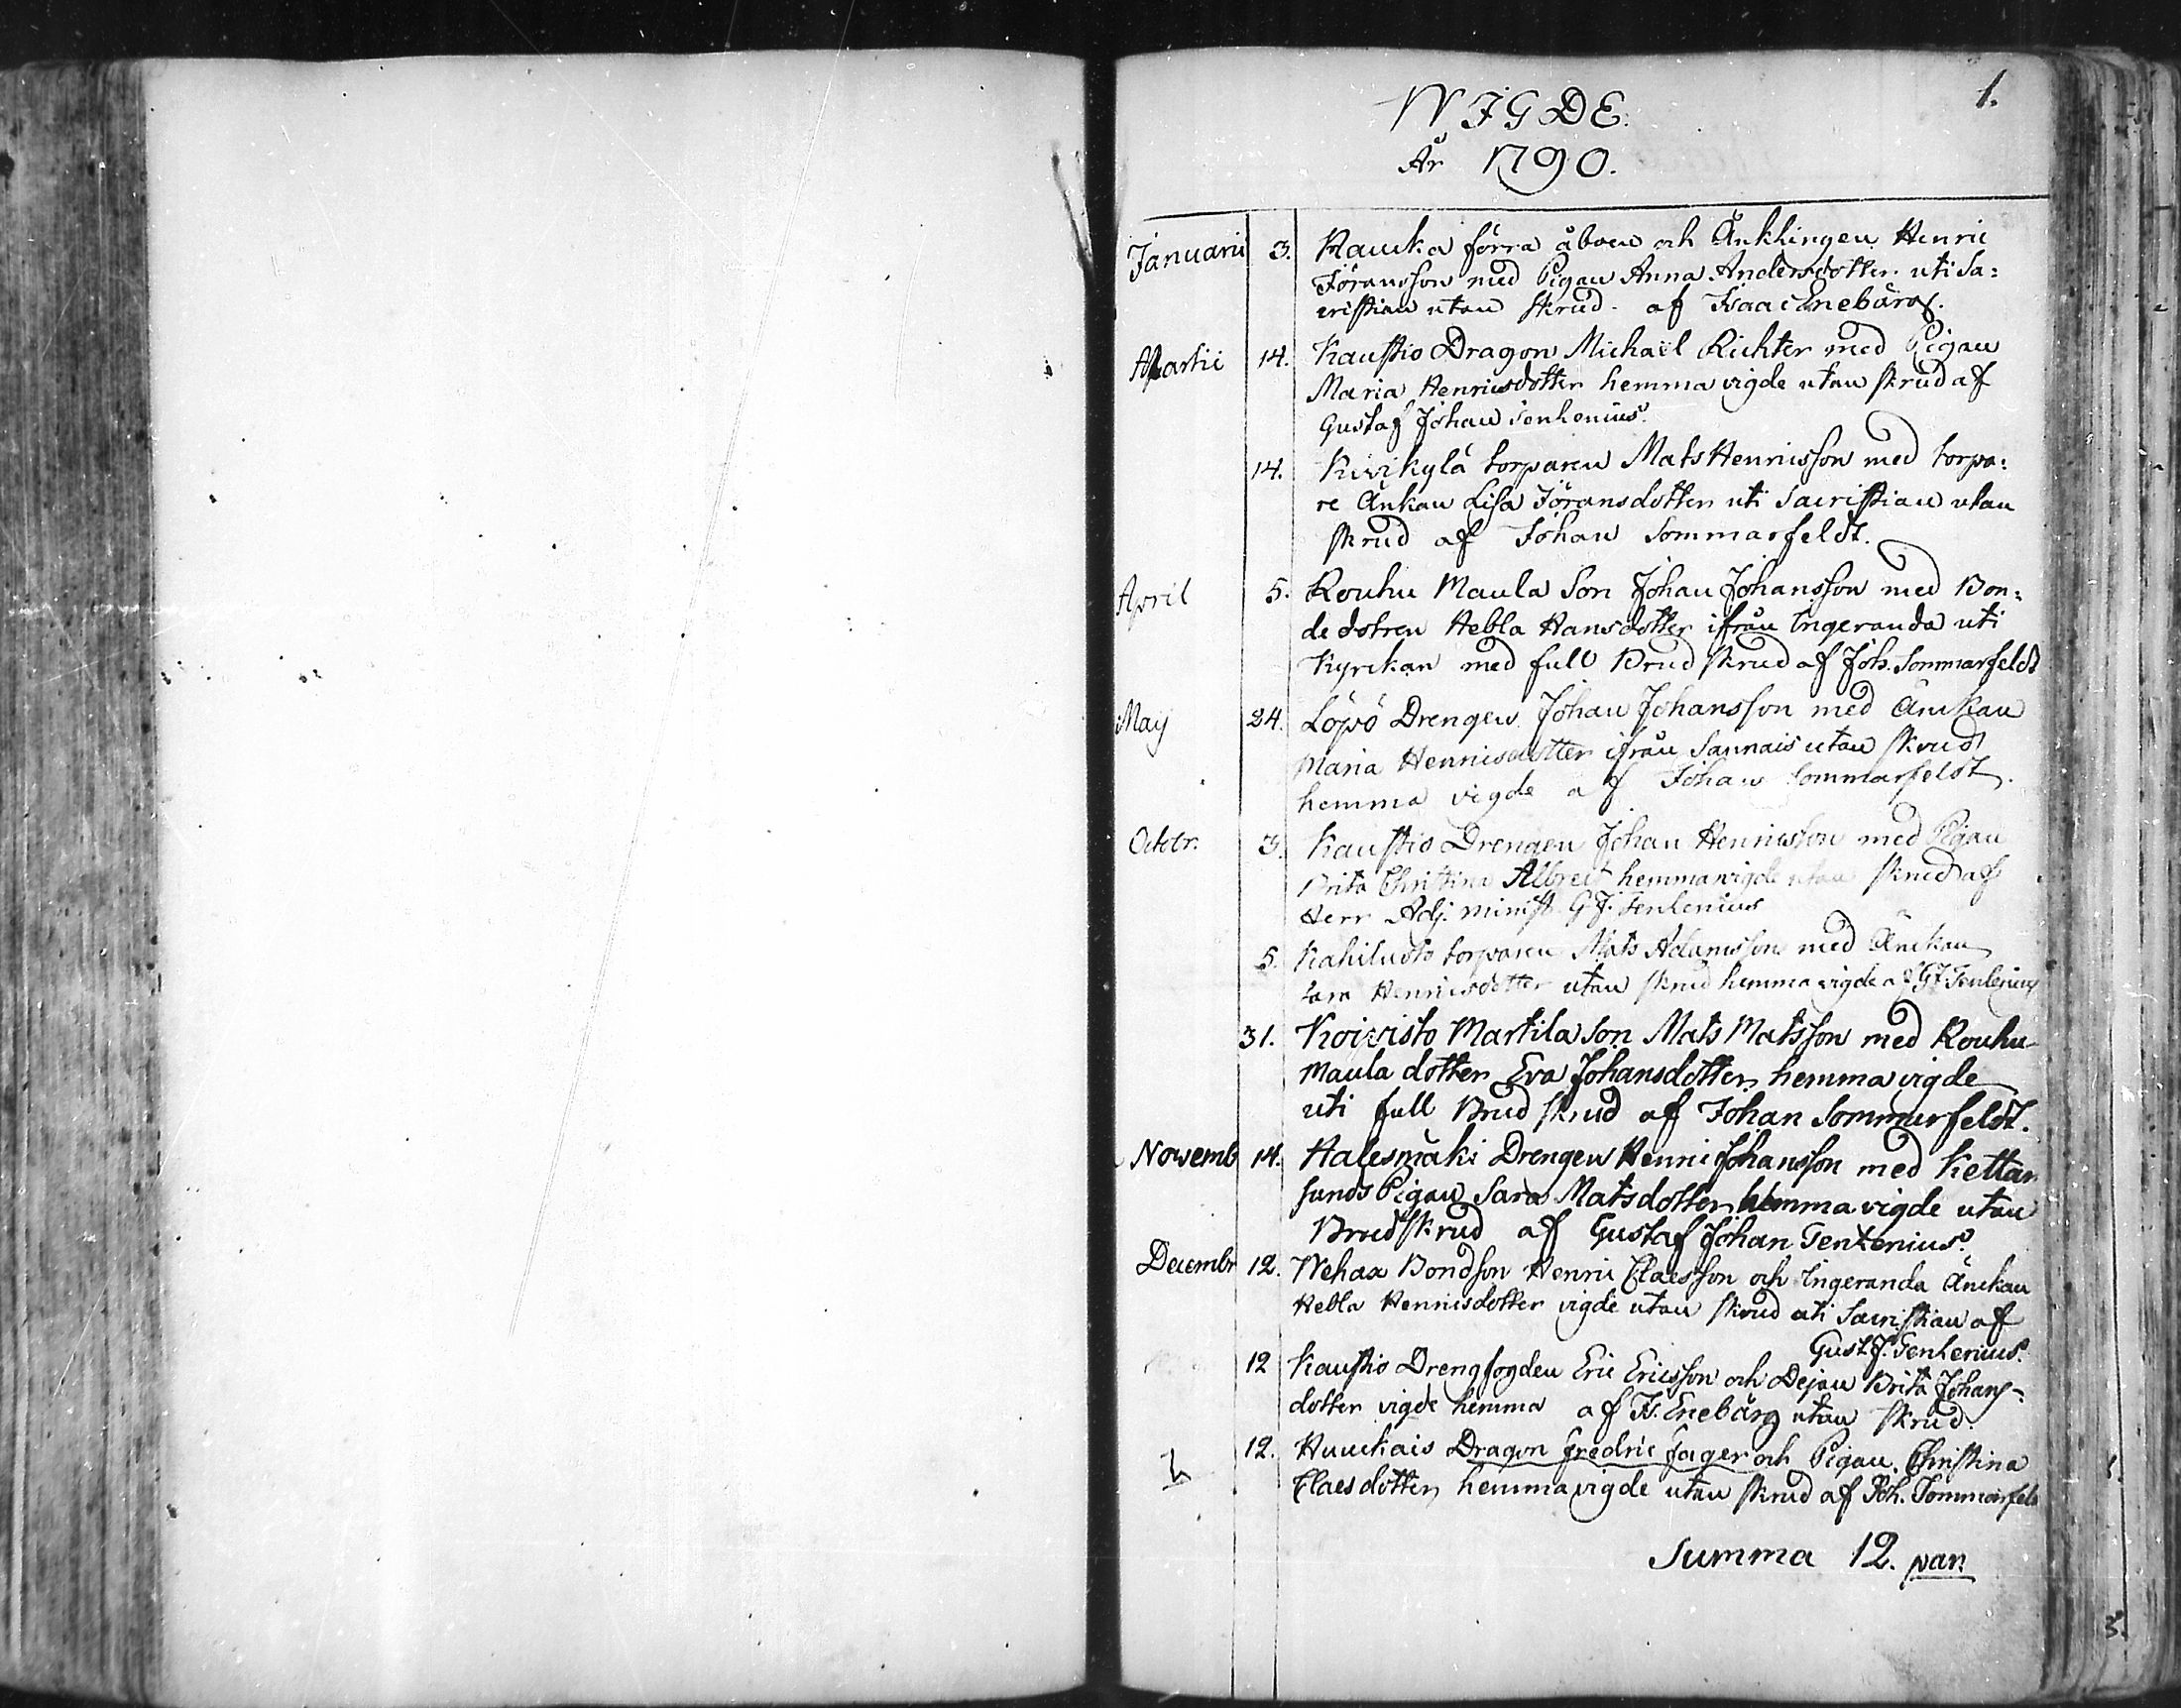 1.
WIGDE.
År 1790.
Januarii 3. Kauka förra åboen och Änklingen Henric
Jöransson med Pigan Anna Andersdotter uti Sa:
cristian utan skrud af Isaac Enebärg.
Martii 14. Kaustio Dragon Michaël Richter med Pigan
Maria Henricsdotter hemma vigde utan skrud af
Gustaf Johan Tenlenius.
14. Kivikylä torparen Mats Henricsson med torpa:
re Änkan Lisa Jöransdotter uti Sacristian utan
skrud af Johan Sommarfeldt.
April 5. Rouhu Maula Son Johan Johansson med Bon:
de dotren Hebla Hansdotter ifrån Ingeranda uti
Kyrckan med full Brud skrud af Joh. Sommarfeldt
May 24. Löpö Drengen Johan Johansson med Änckan
Maria Henricsdotter ifrån Sannais utan skrud
hemma vigde af Johan Sommarfeldt.
Octobr. 3. Kaustio Drengen Johan Henricsson med Pigan
Brita Christina Albrect hemma vigde utan skrud af
Herr Adj. minist. G. J. Tenlenius
5. Kahiluoto torparen Mats Adamsson med Änckan
Sara Henricsdotter utan skrud hemma vigde af G J Tenlenius
31. Koivisto Martila Son Mats Matsson med Rouhu
Maula dotter Eva Johansdotter hemma vigde
uti full Brud skrud af Johan Sommarfeldt.
Novemb 14. Halesmäki Drengen Henric Johansson med Kettar
sunds Pigan Sara Matsdotter hemma vigde utan
Brudskrud af Gustaf Johan Tenlenius.
Decembr 12. Wehax Bondson Henric Claesson och Ingeranda Änckan
Hebla Henricsdotter vigde utan skrud uti Sacristian af
Gust. J. Tenlenius.
12 Kaustio Drengfogden Eric Ericsson och Dejan Brita Johans-
dotter vigde hemma af Is. Enebärg utan skrud.
12. Hunckais Dragon Fredric Jager och Pigan Christina
Claesdotter hemma vigde utan skrud af Joh. Sommarfelt
Summa 12. par.